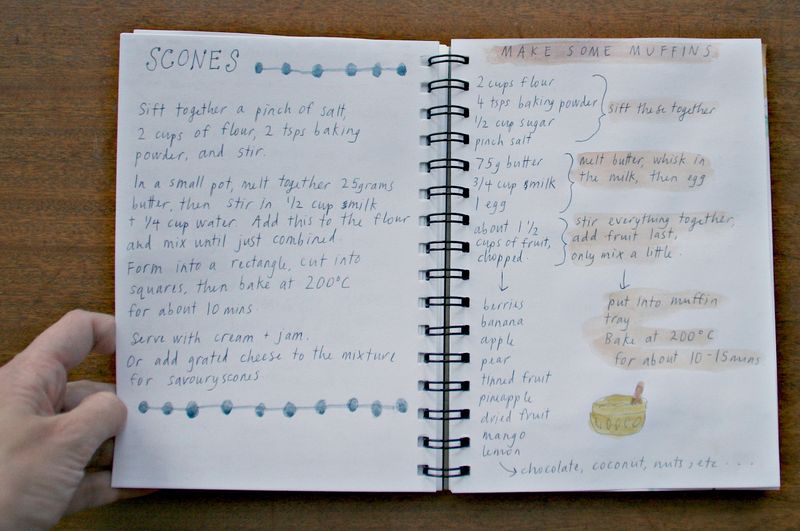 SCONES
Sift together a pinch of salt,
2 cups of flour, 2 tsps baking
powder, and stir.
In a small pot, melt together 25grams
butter, then stir in 1/2 cup milk
+ 1/4 cup water. Add this to the flour
and mix until just combined.
Form into a rectangle, cut into
squares, then bake at 200°C
for about 10 mins.
Serve with cream + jam.
Or add grated cheese to the mixture
for savoury scones
MAKE SOME MUFFINS
2 cups flour
4 tsps baking powder
1/2 cup sugar
pinch salt
sift these together
75g butter
3/4 cup milk
1 egg
melt butter, whisk in
the milk, then egg
about 1 1/2
cups of fruit,
chopped
stir everything together,
add fruit last,
only mix a little.
berries
banana
apple
pear
tinned fruit
pineapple
dried fruit
mango
lemon
chocolate, coconut, nuts, etc ...
put into muffin
tray
Bake at 200°C
for about 10-15mins